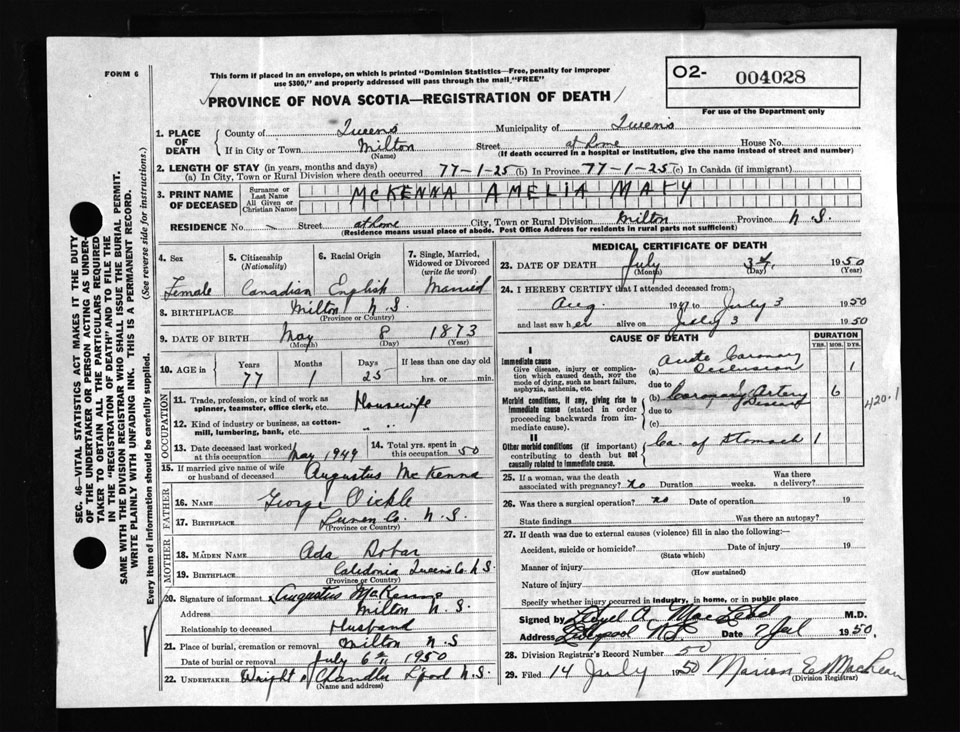 FORM 6
This form if placed in an envelope, on which is printed "Dominion Statistics—Free, penalty for improper
use $300," and properly addressed will pass through the mail "FREE"
PROVINCE OF NOVA SCOTIA—REGISTRATION OF DEATH
O2- 004028
For use of the Department only
1. PLACE OF DEATH
County of Queens Municipality of Queens
If in City or Town Milton Street at home House No.
(Name) (If death occurred in a hospital or institution, give the name instead of street and number)
2. LENGTH OF STAY (in years, months and days)
(a) In City, Town or Rural Division where death occurred 77-1-25 (b) In Province 77-1-25 (c) In Canada (if immigrant)
3. PRINT NAME OF DECEASED
Surname or Last Name
All Given or Christian Names
MCKENNA AMELIA MARY
RESIDENCE No. Street at home City, Town or Rural Division Milton Province N.S.
(Residence means usual place of abode. Post Office Address for residents in rural parts not sufficient)
4. Sex
Female
5. Citizenship
(Nationality)
Canadian
6. Racial Origin
English
7. Single, Married, Widowed or Divorced
(write the word)
Married
8. BIRTHPLACE Milton N.S.
(Province or Country)
9. DATE OF BIRTH May 8 1873
(Month) (Day) (Year)
10. AGE in
Years Months Days If less than one day old
77 1 25 hrs. or min.
OCCUPATION
11. Trade, profession, or kind of work as
spinner, teamster, office clerk, etc. Housewife
12. Kind of industry or business, as cotton-
mill, lumbering, bank, etc. " "
13. Date deceased last worked
at this occupation May 1949
14. Total yrs. spent in
this occupation 50
15. If married give name of wife
or husband of deceased Augustus McKenna
FATHER
16. NAME George Dickle
17. BIRTHPLACE Lunen Co. N.S.
(Province or Country)
MOTHER
18. MAIDEN NAME Ada
19. BIRTHPLACE Caledonia Queens Co. N.S.
(Province or Country)
20. Signature of informant Augustus McKenna
Address Milton N.S.
Relationship to deceased Husband
21. Place of burial, cremation or removal Milton N.S
Date of burial or removal July 6th 1950
22. UNDERTAKER Wright & Chandler L'pool N.S.
(Name and address)
MEDICAL CERTIFICATE OF DEATH
23. DATE OF DEATH July 3rd, 1950
(Month) (Day) (Year)
24. I HEREBY CERTIFY that I attended deceased from
Aug. July 3 1950
and last saw her alive on July 3 1950
CAUSE OF DEATH
DURATION
YRS. MOS. DYS.
I
Immediate cause
Give disease, injury or complica-
tion which caused death, NOT the
mode of dying, such as heart failure,
asphyxia, asthenia, etc.
(a) Acute Coronary
Occlusion 1
due to
Morbid conditions, if any, giving rise to
immediate cause (stated in order
proceeding backwards from
immediate cause)
(b) Coronary Artery 6
Disease
due to
(c)
420.1
II
Other morbid conditions (if important)
contributing to death but not
causally related to immediate cause.
Ca. of Stomach 1
25. If a woman, was the death
associated with pregnancy? no Duration weeks. Was there
a delivery?
26. Was there a surgical operation? no Date of operation 19
State findings Was there an autopsy?
27. If death was due to external causes (violence) fill in also the following:—
Accident, suicide or homicide? Date of injury 19
(State which)
Manner of injury
(How sustained)
Nature of injury
Specify whether injury occurred in industry, in home, or in public place
Signed by Lloyd A. MacLeod M.D.
Address Liverpool N.S. Date 7 Jul 1950.
28. Division Registrar's Record Number 50
29. Filed 14 July 1950 Marion E. MacLean
(Division Registrar)
SEC. 46—VITAL STATISTICS ACT MAKES IT THE DUTY
OF THE UNDERTAKER OR PERSON ACTING AS UNDER-
TAKER TO OBTAIN ALL THE PARTICULARS REQUIRED
IN THE "REGISTRATION OF DEATH" AND TO FILE THE
SAME WITH THE DIVISION REGISTRAR WHO SHALL ISSUE THE BURIAL PERMIT.
WRITE PLAINLY WITH UNFADING INK. THIS IS A PERMANENT RECORD.
Every item of information should be carefully supplied. (See reverse side for instructions.)